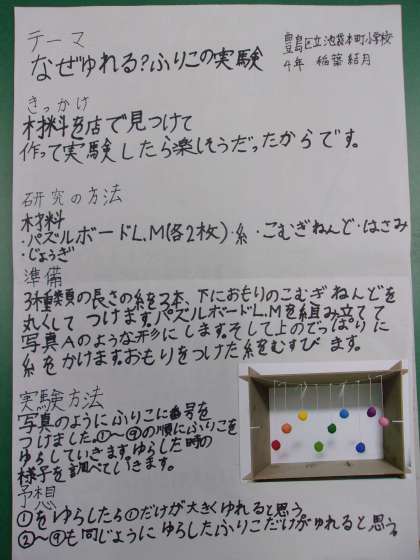 テーマ
なぜゆれる?ふりこの実験
豊島区立池袋本町小学校
4年 稲葉 結月
きっかけ
材料を店で見つけて
作って実験したら楽しそうだったからです。
研究の方法
材料
・パズルボードL.M(各2枚)・糸・こむぎねんど・はさみ
・じょうぎ
準備
3種類の長さの糸を3本、下におもりのこむぎねんどを
丸くしてつけます。パズルボードL.Mを組み立てて
写真Aのような形にします。そして上のでっぱりに
糸をかけます。おもりをつけた糸をむすびます。
実験方法
写真のようにふりこに番号を
つけました。①〜⑨の順にふりこを
ゆらしていきます。ゆらした時の
様子を調べていきます。
予想
①をゆらしたら①だけが大きくゆれると思う。
②〜⑨も同じようにゆらしたふりこだけがゆれると思う。